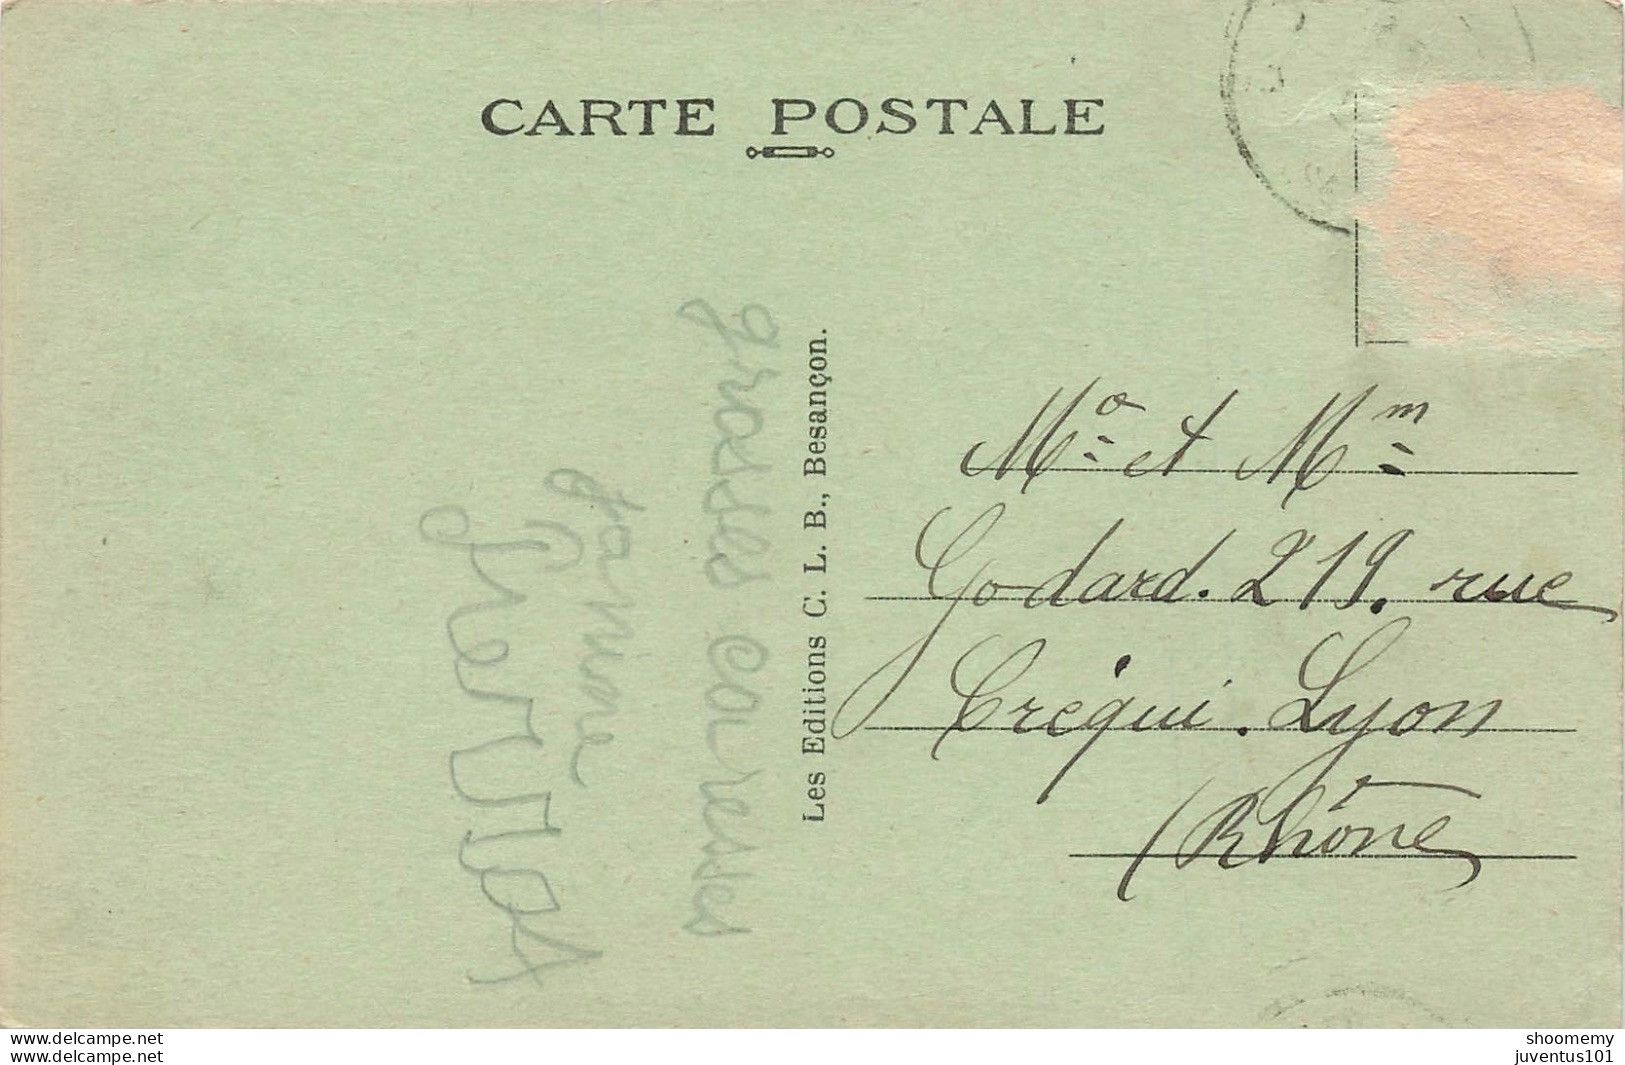 CARTE POSTALE
grosses caresses
Janine
Pierrot
Les Editions C. L. B., Besançon.
Mr et Mm
Godard. 219. rue
Créqui. Lyon
(Rhône
www.delcampe.net
www.delcampe.net
shoomemy
juventus101